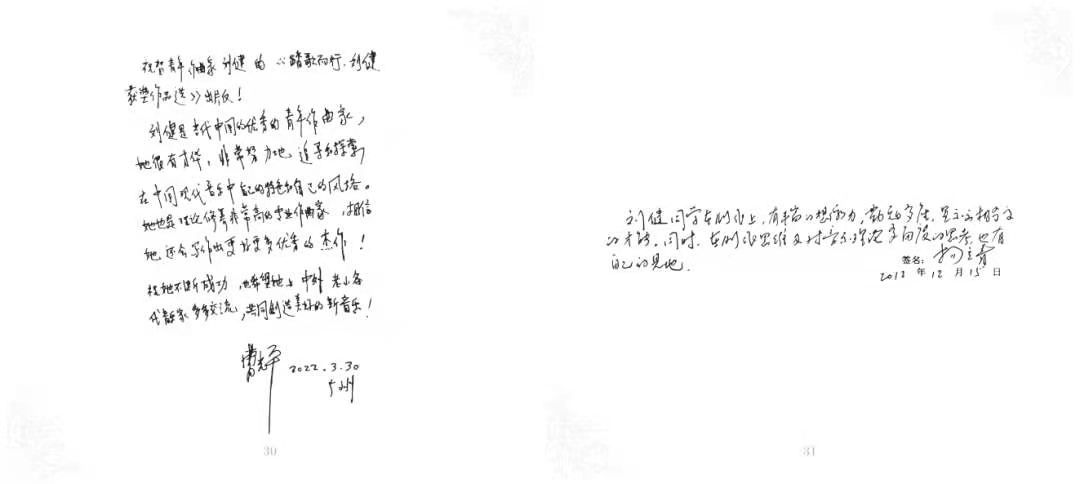 祝贺青年作曲家刘健的《踏歌而行·刘健
获奖作品选》出版！
刘健是当代中国的优秀的青年作曲家，
她很有才华，非常努力地追寻和探索，
在中国现代音乐中自己的特色和自己的风格。
她也是理论修养非常高的专业作曲家，相信
她还会写作出更好更多优秀的杰作！
祝她不断成功，也希望她与中外老小各
代音乐家多多交流，共同创造美好的新音乐！
2022.3.30
广州
30
刘健同学在创作上，有丰富的想象力，勤奋多产，显示出相当高
的才能。同时，在创作思维及对音乐理论多向度的思考也有
自己的见地.
签名：
2012 年 12 月 15 日
31